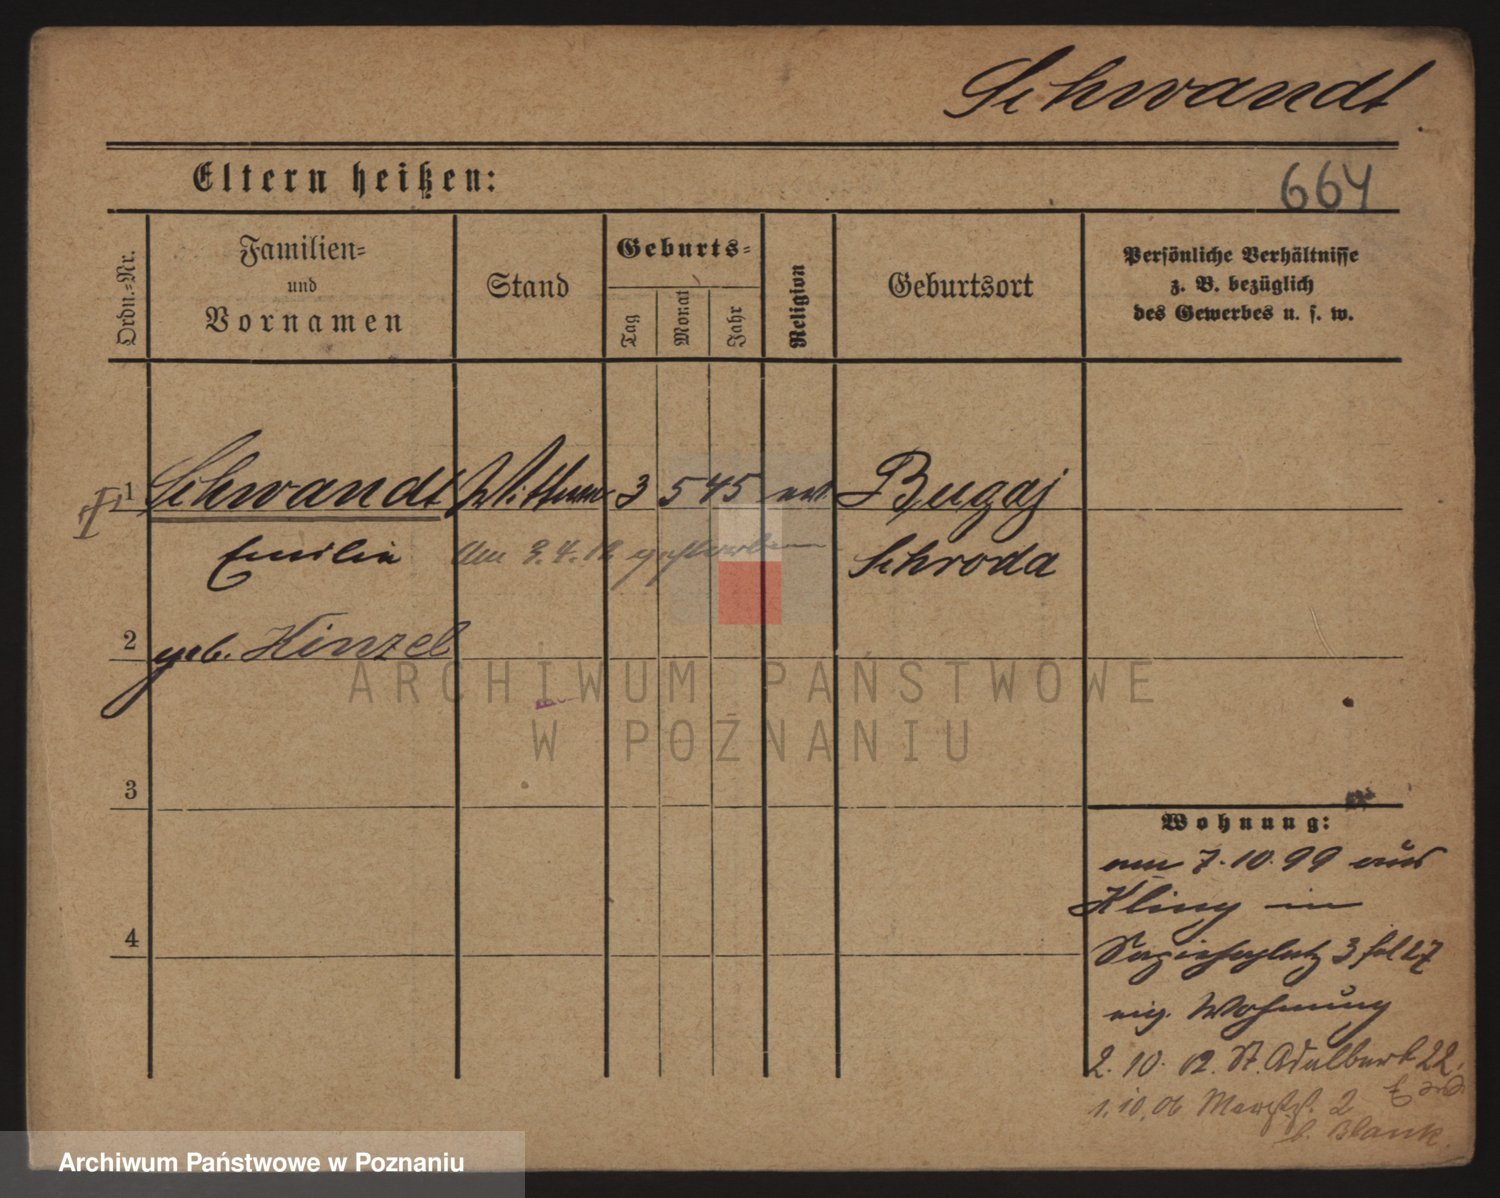 Schwandt
Eltern heißen:
664
Ordn.=Nr.
Familien=
und
Vornamen
Stand
Geburts=
Tag
Monat
Jahr
Religion
Geburtsort
Persönliche Verhältnisse
z. B. bezüglich
des Gewerbes u. s. w.
1 Schwandt Wittwe 3 5 45 ev. Bugaj
Emilie
am 3.4.12 gestorben
Schroda
2
geb. Hinzel
ARCHIWUM PAŃSTWOWE
W POZNANIU
3
Wohnung:
am 7.10.99 aus
Kling in
Sapiehaplatz 3
4
eig. Wohnung
2.10.02. St. Adalbert 22.
1.10.06 2
b. Blank.
Archiwum Państwowe w Poznaniu